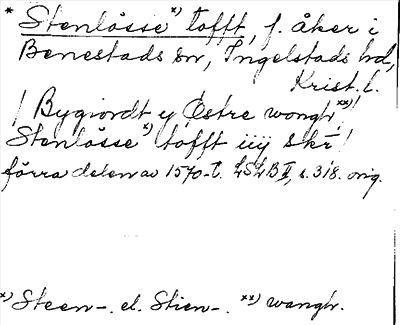 * Stenlösse ˣ⁾ tofft, f. åker i
Benestads sn, Ingelstads hd,
Krist. l.
/ Bygiordt y Östre wongh ˣˣ⁾/
Stenlösse ˣ⁾ tofft iiij Skr /
förra delen av 1570-t. LSLB II, s. 318. orig.
ˣ⁾ Steen-. el. Stien-. ˣˣ⁾ wangh.